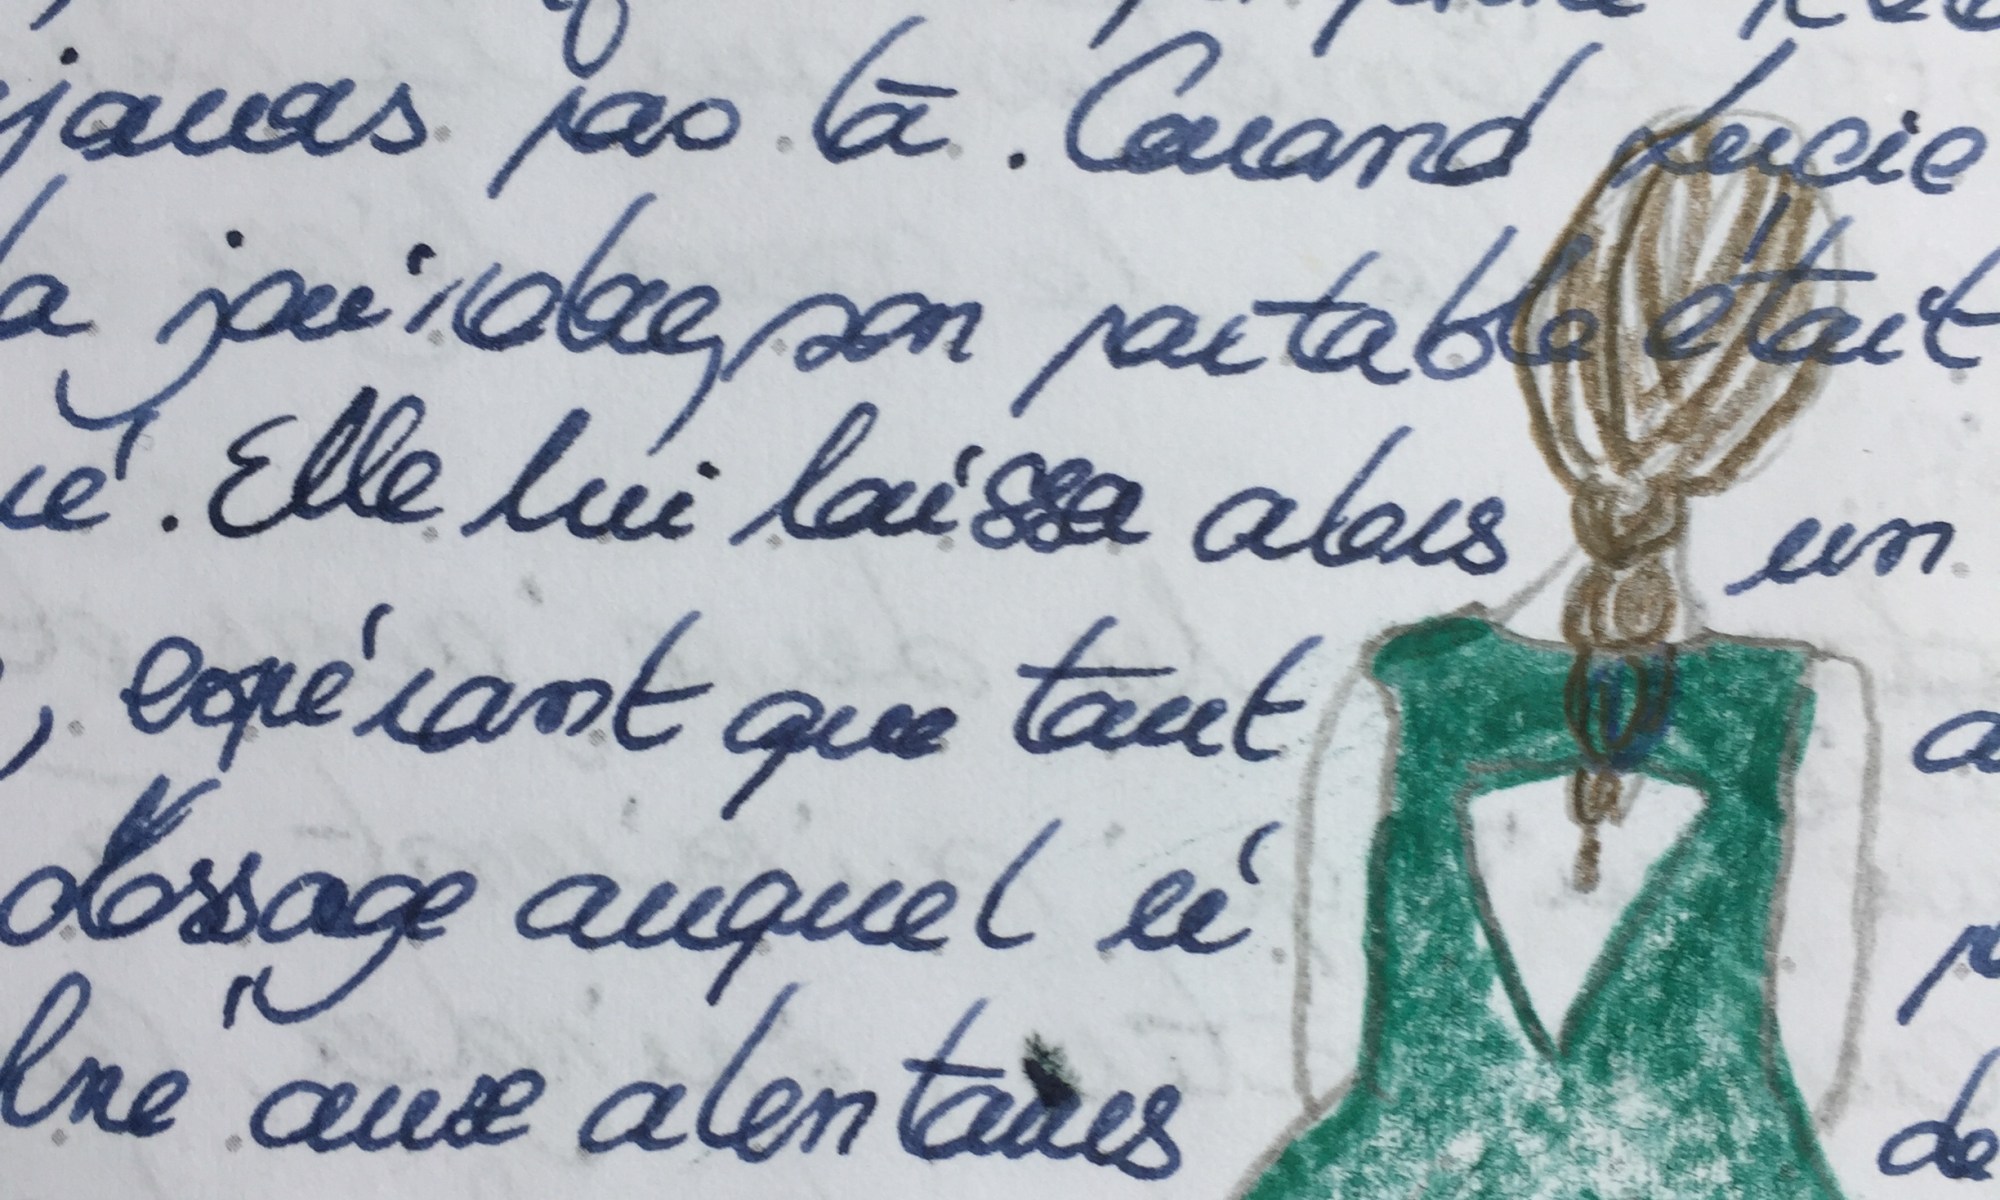 pas là. Quand Lucie
la joignable, son portable était
é. Elle lui laissa alors un
, espérant que tout a
message auquel
aux alentours de